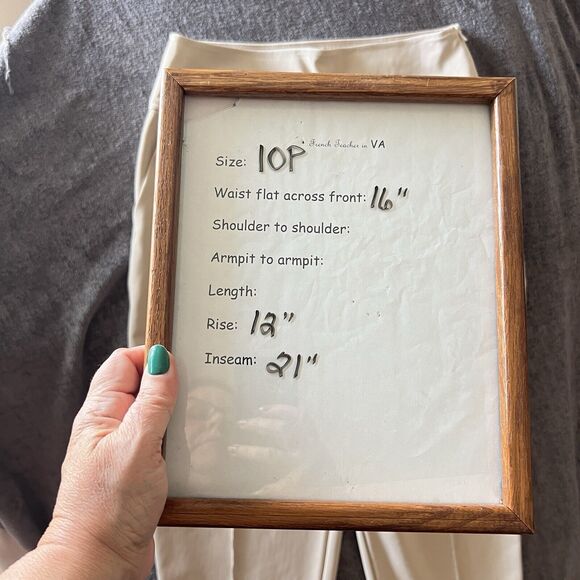 French Teacher in VA
Size: 10P
Waist flat across front: 16"
Shoulder to shoulder:
Armpit to armpit:
Length:
Rise: 12"
Inseam: 21"